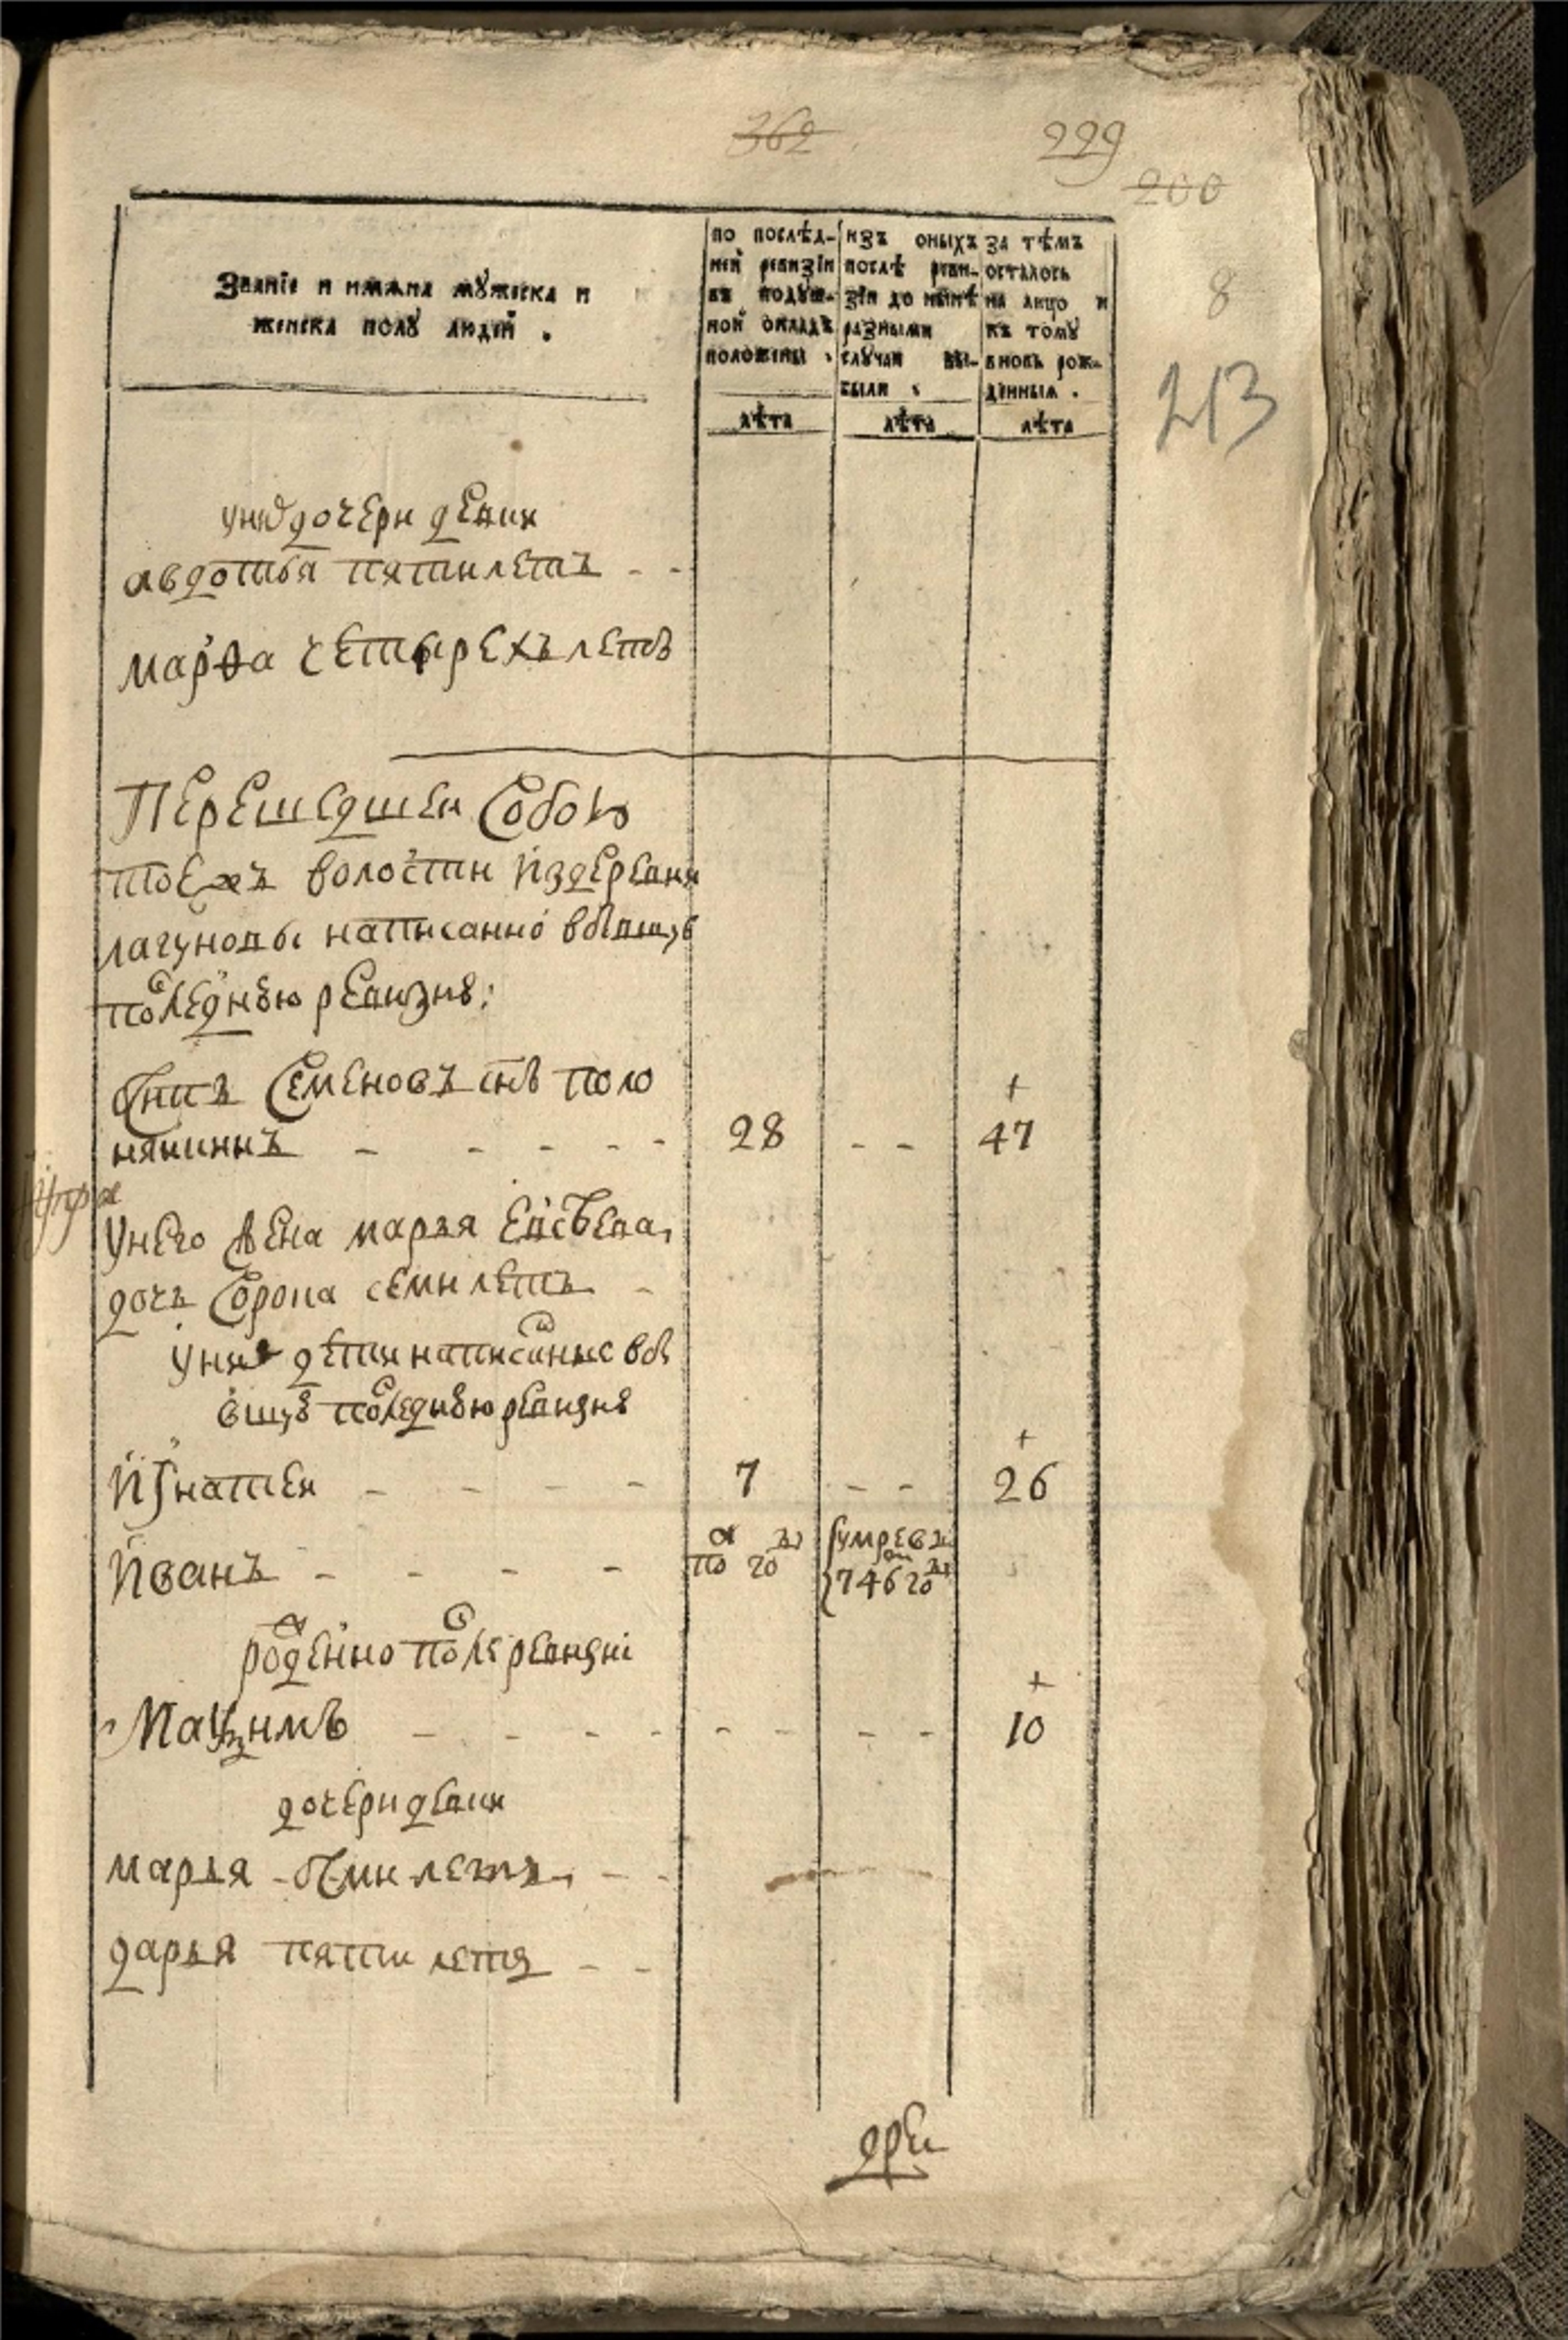 362
229
200
8
213
Званіе и имяна мꙋжеска и
женска полꙋ людей .
по послѣд-
ней ревизіи
въ подꙋш-
ной окладъ
положены .
лѣта
изъ оныхъ
послѣ реви-
зіи до нынѣ
разными
слꙋчаи вы-
были .
лѣта
за тѣмъ
осталось
на лицо и
къ томꙋ
вновь рож-
денныя .
лѣта
у них дочери девки
авдотья пяти летъ - -
марѳа четырехъ летъ
Перешедшеи собою
тоежъ волости из деревни
лагуновы написанно в бывшую
последнюю ревизию:
семеновъ снъ поло
нянинъ - - - - - 28 - - + 47
у него жена марья евсѣева
дочь сорока семи летъ -
у них дети написанные в бы
вшую последнюю ревизию
Игнатеи - - - - 7 - - + 26
Иванъ - - - - по году умре в 746 году
рожденно после ревизиі
Маѯимъ - - - - - - - - + 10
дочери девки
марья - осми летъ - -
дарья пяти летъ - -